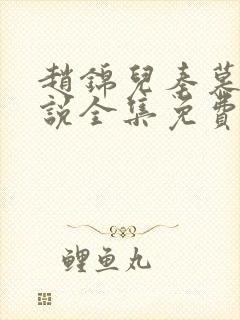 趙錦兒秦慕
說全集免費
鯉魚丸